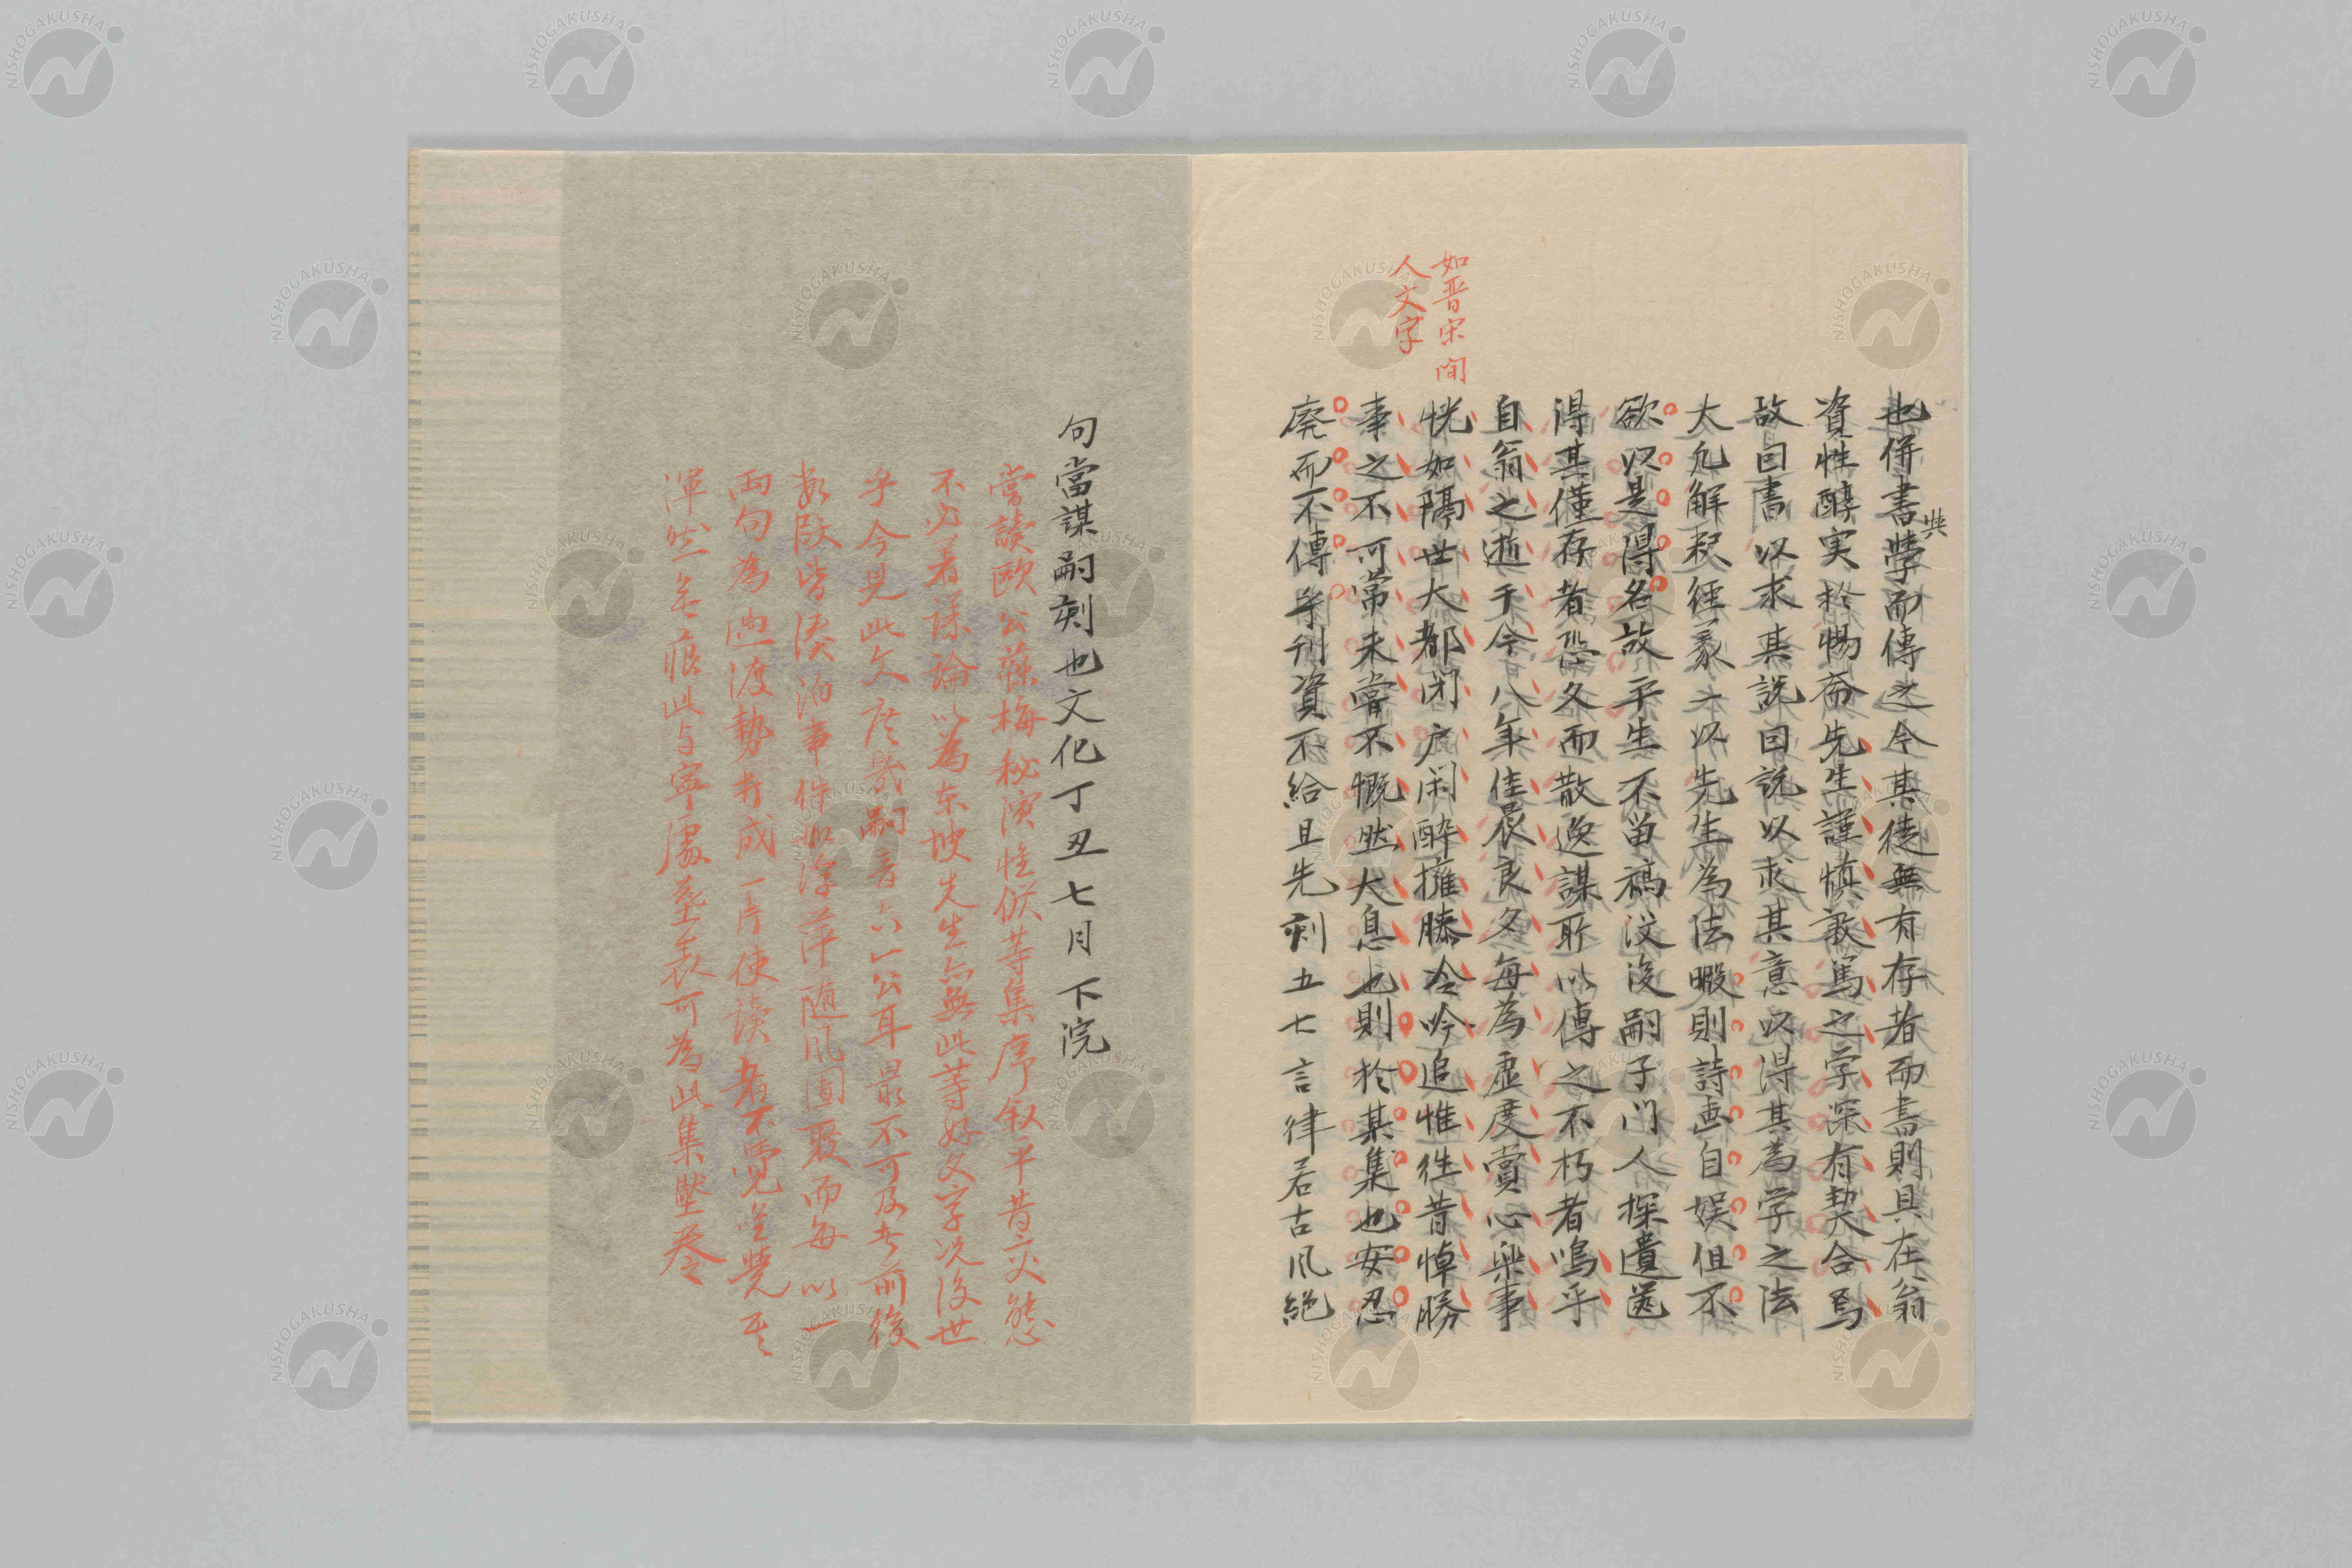 如晋宋間
人文字
也併書學而傳之今其徒無有存者而書則具在翁
資性醇実於惕斎先生謹慎敦篤之学深有契合焉
故曰書以求其説曰説以求其意以得其為学之法
大凡解釈経義亠以先生為法暇則詩画自娯但不
欲以是得名故平生不留稿没後嗣子门人探遺篋
得其僅存者恐久而散逸謀所以傳之不朽者嗚乎
自翁之逝于今八年佳晨良夕每為虚度賞心楽事
恍如隔世大都闭户闲酔擁膝冷吟追惟徃昔悼勝
事之不可常未嘗不慨然大息也則於某集也安忍
廃而不傳乎刊資不給且先刻五七言律若古风絶
句當謀嗣刻也文化丁丑七月下浣
嘗讀歐公蘇梅秘演惟儼等集序叙平昔交態
不必着議論以為东坡先生亦無此等好文字况後世
乎今見此文庶幾嗣音六一公耳最不可及者前後
数段皆湊泊事保如浮萍随风圓聚而每以一
両句為過渡勢打成一片使讀者不覺
渾然無痕此与寧處葬表可為此集壓卷